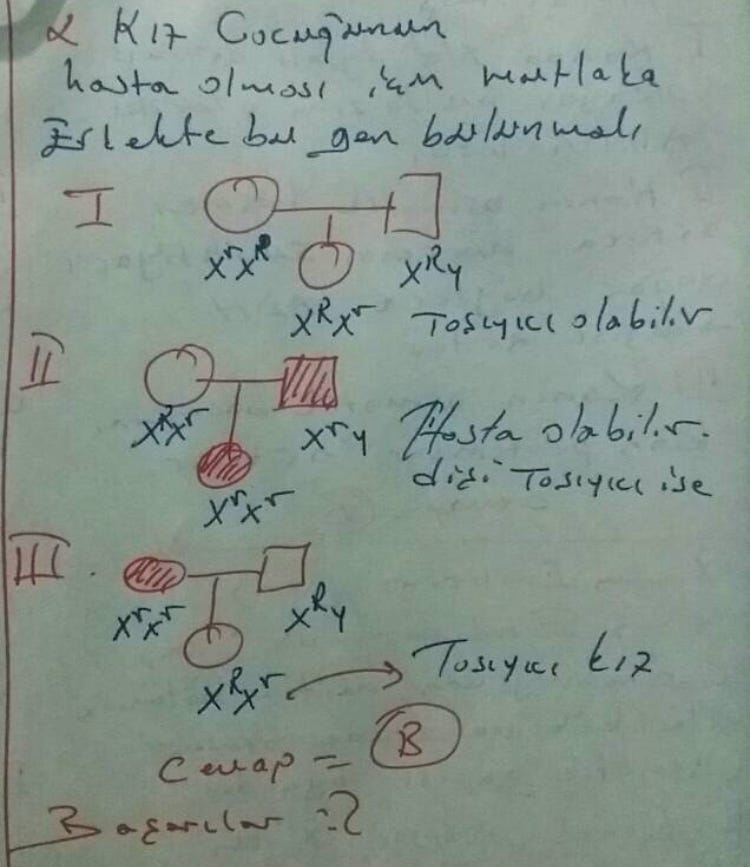 2 Kız Çocuğunun
hasta olması için mutlaka
Erkekte bu gen bulunmalı
I
XʳXᴿ XᴿY
XᴿXʳ Taşıyıcı olabilir
II
XᴿXʳ XʳY Hasta olabilir.
dişi Taşıyıcı ise
XʳXʳ
III.
XʳXʳ XᴿY
XᴿXʳ Taşıyıcı kız
Cevap = B
Başarılar :)